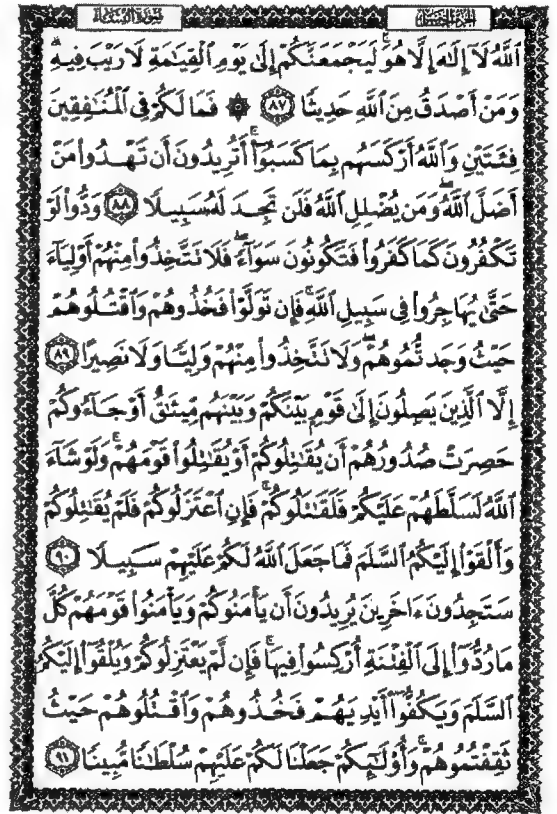 سورة النساء
الجزء الخامس
ٱللَّهُ لَآ إِلَٰهَ إِلَّا هُوَ ۚ لَيَجْمَعَنَّكُمْ إِلَىٰ يَوْمِ ٱلْقِيَٰمَةِ لَا رَيْبَ فِيهِ ۗ
وَمَنْ أَصْدَقُ مِنَ ٱللَّهِ حَدِيثًا ٨٧ ۞ فَمَا لَكُمْ فِى ٱلْمُنَٰفِقِينَ
فِئَتَيْنِ وَٱللَّهُ أَرْكَسَهُم بِمَا كَسَبُوٓا۟ ۚ أَتُرِيدُونَ أَن تَهْدُوا۟ مَنْ
أَضَلَّ ٱللَّهُ ۖ وَمَن يُضْلِلِ ٱللَّهُ فَلَن تَجِدَ لَهُۥ سَبِيلًا ٨٨ وَدُّوا۟ لَوْ
تَكْفُرُونَ كَمَا كَفَرُوا۟ فَتَكُونُونَ سَوَآءً ۖ فَلَا تَتَّخِذُوا۟ مِنْهُمْ أَوْلِيَآءَ
حَتَّىٰ يُهَاجِرُوا۟ فِى سَبِيلِ ٱللَّهِ ۚ فَإِن تَوَلَّوْا۟ فَخُذُوهُمْ وَٱقْتُلُوهُمْ
حَيْثُ وَجَدتُّمُوهُمْ ۖ وَلَا تَتَّخِذُوا۟ مِنْهُمْ وَلِيًّا وَلَا نَصِيرًا ٨٩
إِلَّا ٱلَّذِينَ يَصِلُونَ إِلَىٰ قَوْمٍۭ بَيْنَكُمْ وَبَيْنَهُم مِّيثَٰقٌ أَوْ جَآءُوكُمْ
حَصِرَتْ صُدُورُهُمْ أَن يُقَٰتِلُوكُمْ أَوْ يُقَٰتِلُوا۟ قَوْمَهُمْ ۚ وَلَوْ شَآءَ
ٱللَّهُ لَسَلَّطَهُمْ عَلَيْكُمْ فَلَقَٰتَلُوكُمْ ۚ فَإِنِ ٱعْتَزَلُوكُمْ فَلَمْ يُقَٰتِلُوكُمْ
وَأَلْقَوْا۟ إِلَيْكُمُ ٱلسَّلَمَ فَمَا جَعَلَ ٱللَّهُ لَكُمْ عَلَيْهِمْ سَبِيلًا ٩٠
سَتَجِدُونَ ءَاخَرِينَ يُرِيدُونَ أَن يَأْمَنُوكُمْ وَيَأْمَنُوا۟ قَوْمَهُمْ كُلَّ
مَا رُدُّوٓا۟ إِلَى ٱلْفِتْنَةِ أُرْكِسُوا۟ فِيهَا ۚ فَإِن لَّمْ يَعْتَزِلُوكُمْ وَيُلْقُوٓا۟ إِلَيْكُمُ
ٱلسَّلَمَ وَيَكُفُّوٓا۟ أَيْدِيَهُمْ فَخُذُوهُمْ وَٱقْتُلُوهُمْ حَيْثُ
ثَقِفْتُمُوهُمْ ۚ وَأُو۟لَٰٓئِكُمْ جَعَلْنَا لَكُمْ عَلَيْهِمْ سُلْطَٰنًا مُّبِينًا ٩١